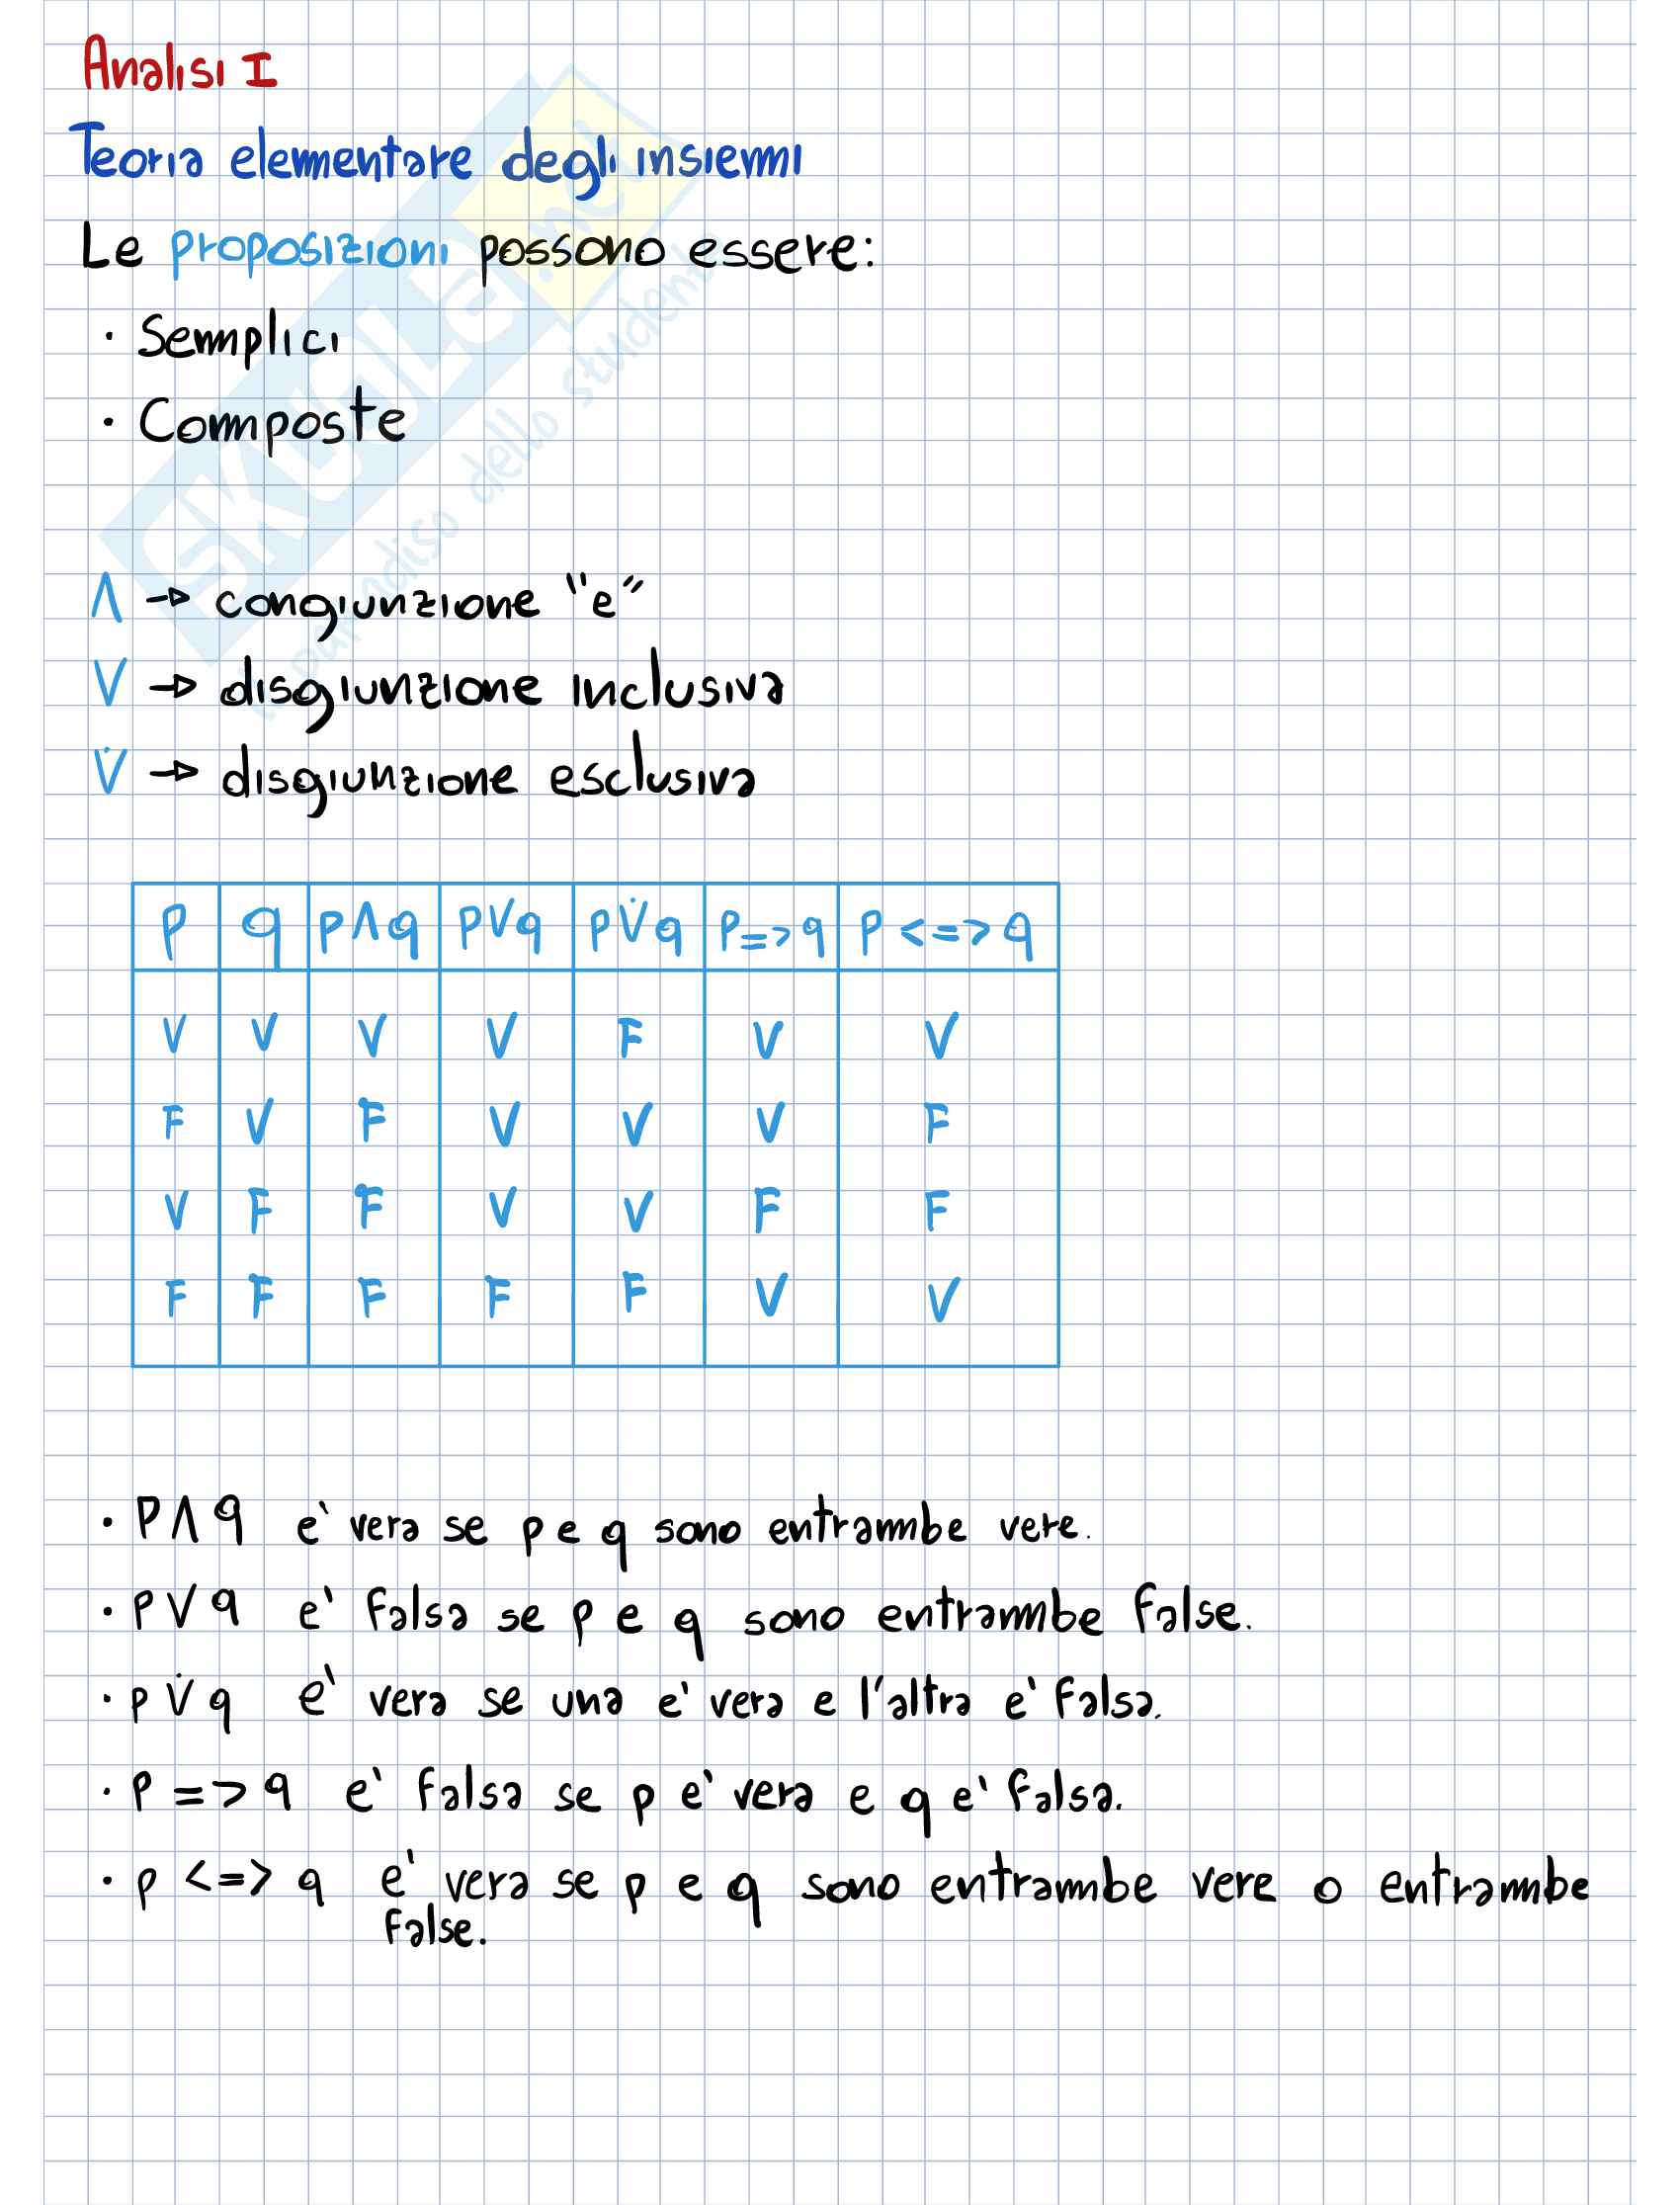 Analisi I
Teoria elementare degli insiemi
Le proposizioni possono essere:
· Semplici
· Composte
SKUOLA.net
il paradiso dello studente
Λ → congiunzione "e"
V → disgiunzione inclusiva
V̇ → disgiunzione esclusiva
p q pΛq pVq pV̇q p=>q p<=>q
V V V V F V V
F V F V V V F
V F F V V F F
F F F F F V V
· pΛq e' vera se p e q sono entrambe vere.
· pVq e' falsa se p e q sono entrambe false.
· pV̇q e' vera se una e' vera e l'altra e' falsa.
· p=>q e' falsa se p e' vera e q e' falsa.
· p<=>q e' vera se p e q sono entrambe vere o entrambe
false.